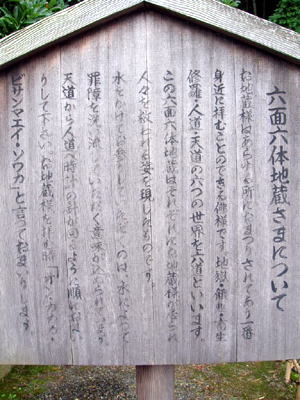 六面六体地蔵さまについて
お地蔵様はあらゆる所におまつりされており一番
身近に拝むことのできる佛様です 地獄・餓鬼・畜生
修羅・人道・天道の六つの世界を六道といいます
この六面六体地蔵はそれぞれにお地蔵様が
人々を救われる姿を現したものです
水をかけて のは、水によって
罪障を洗い流していただく意味が込められています
天道から人道へ時計の針が回るように願いをこめ
りして下さい お地蔵様を拝む時「オン・カカカ・
ビサンマエイ・ソワカ」と言っておまいりします